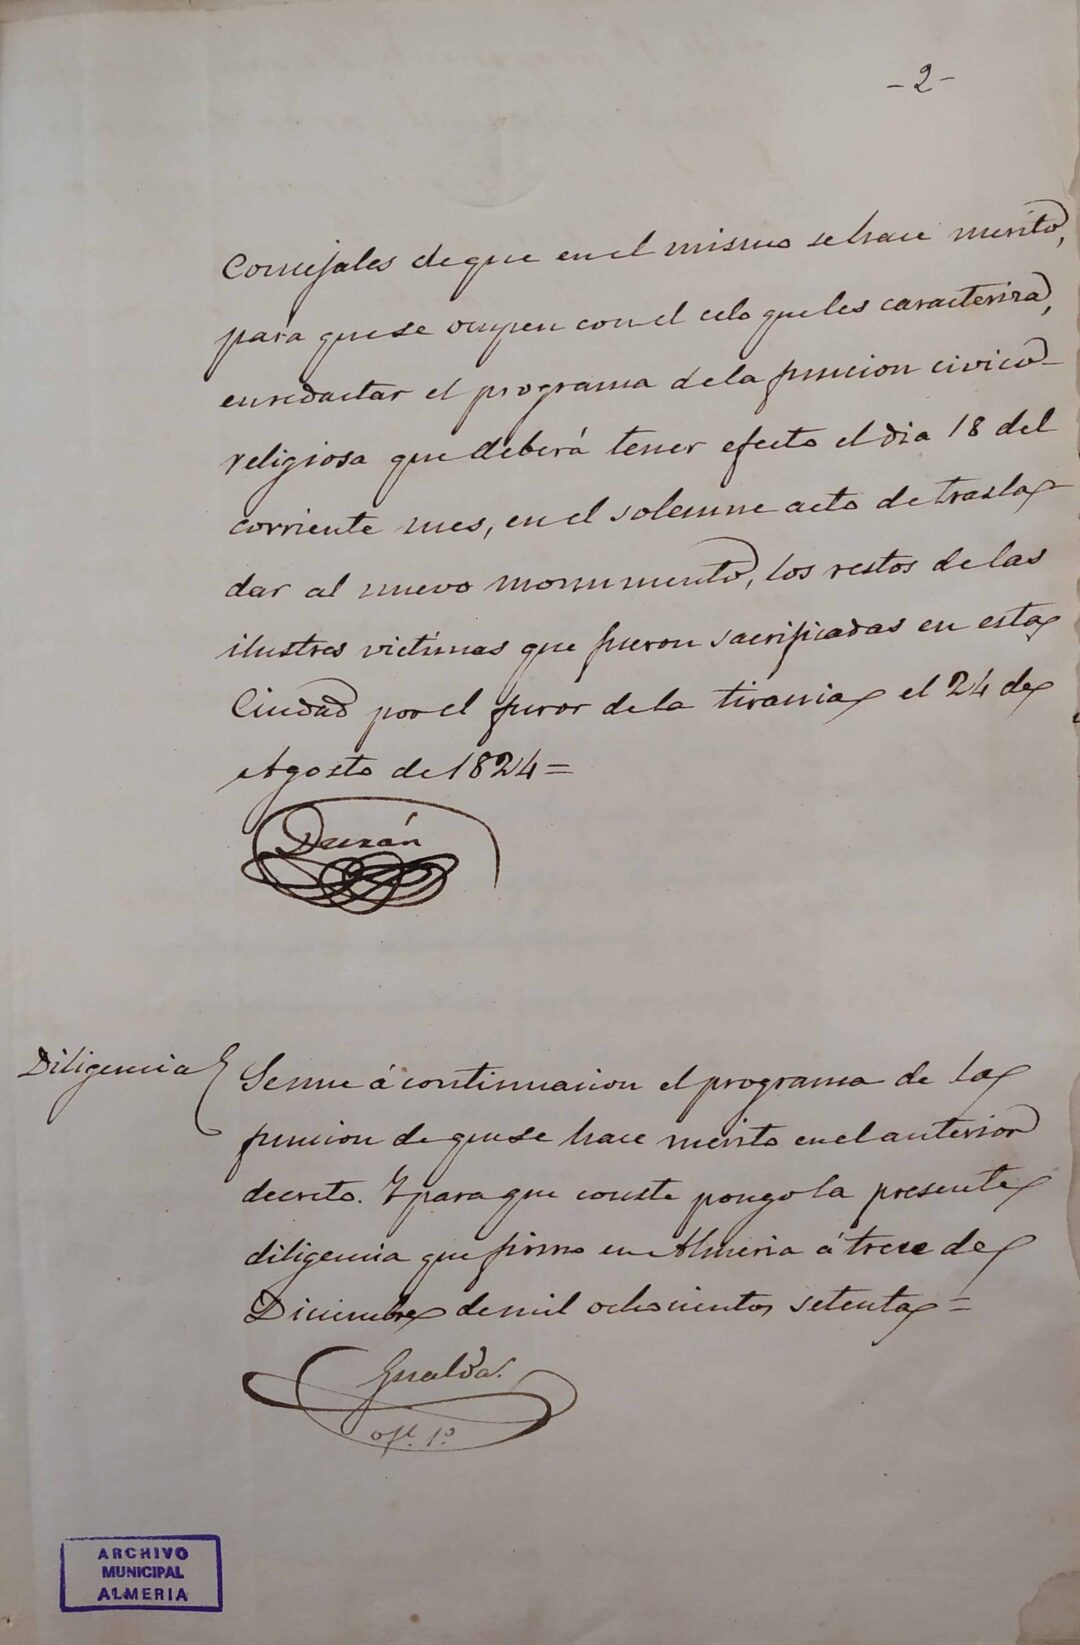 -2-
Concejales de que en el mismo se hace merito,
para que se ocupen con el celo que les caracteriza,
en redactar el programa de la funcion civico-
religiosa que deberá tener efecto el dia 18 del
corriente mes, en el solemne acto de trasla-
dar al nuevo monumento, los restos de las
ilustres victimas que fueron sacrificadas en esta
Ciudad por el furor de la tirania el 24 de
Agosto de 1824=
Durán
Diligencia
Se une á continuacion el programa de la
funcion de que se hace merito en el anterior
decreto. Y para que conste pongo la presente
diligencia que firmo en Almeria á trece de
Diciembre de mil ochocientos setenta=
Gualda.
ofl. 1º
ARCHIVO
MUNICIPAL
ALMERIA